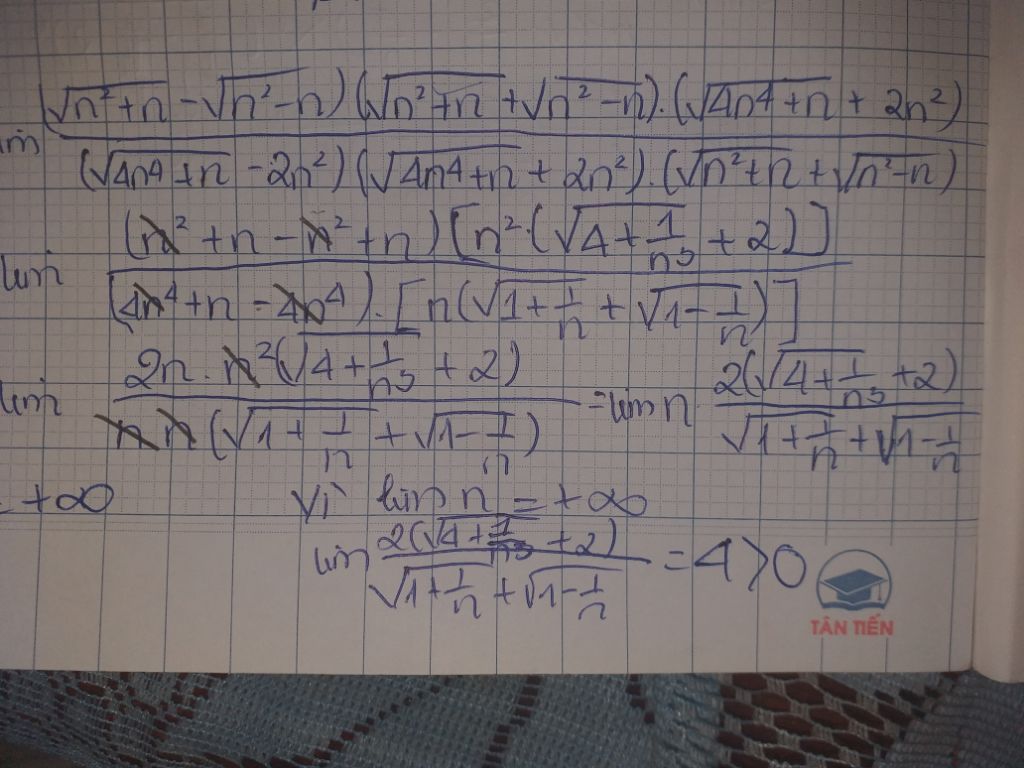 lim ((√(n²+n) - √(n²-n))(√(n²+n) + √(n²-n)).(√(4n⁴+n) + 2n²))/((√(4n⁴+n) - 2n²)(√(4n⁴+n) + 2n²).(√(n²+n) + √(n²-n)))
lim ((n² + n - n² + n)[n².(√(4+1/n³) + 2)])/((4n⁴ + n - 4n⁴).[n(√(1+1/n) + √(1-1/n))])
lim (2n.n²(√(4+1/n³) + 2))/(n.n(√(1+1/n) + √(1-1/n))) = lim n. (2(√(4+1/n³) + 2))/(√(1+1/n) + √(1-1/n))
= +∞ Vì lim n = +∞
lim (2(√(4+1/n³) + 2))/(√(1+1/n) + √(1-1/n)) = 4 > 0
TÂN TIẾN